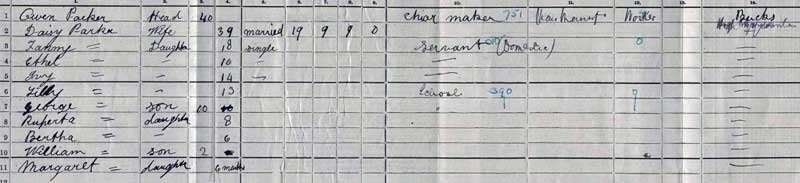 1 Owen Parker Head 40 Chair maker 751 Worker Bucks
2 Daisy Parker Wife 39 married 19 9 9 0
3 Fanny " Daughter 18 single Servant (Domestic) 0
4 Ethel " - 10 - -
5 Ivy " - 14 - -
6 Lilly " - 13 School 390
7 George = son 10 10
8 Ruperta = daughter 8
9 Bertha = - 6
10 William = son 2
11 Margaret = daughter 6 months